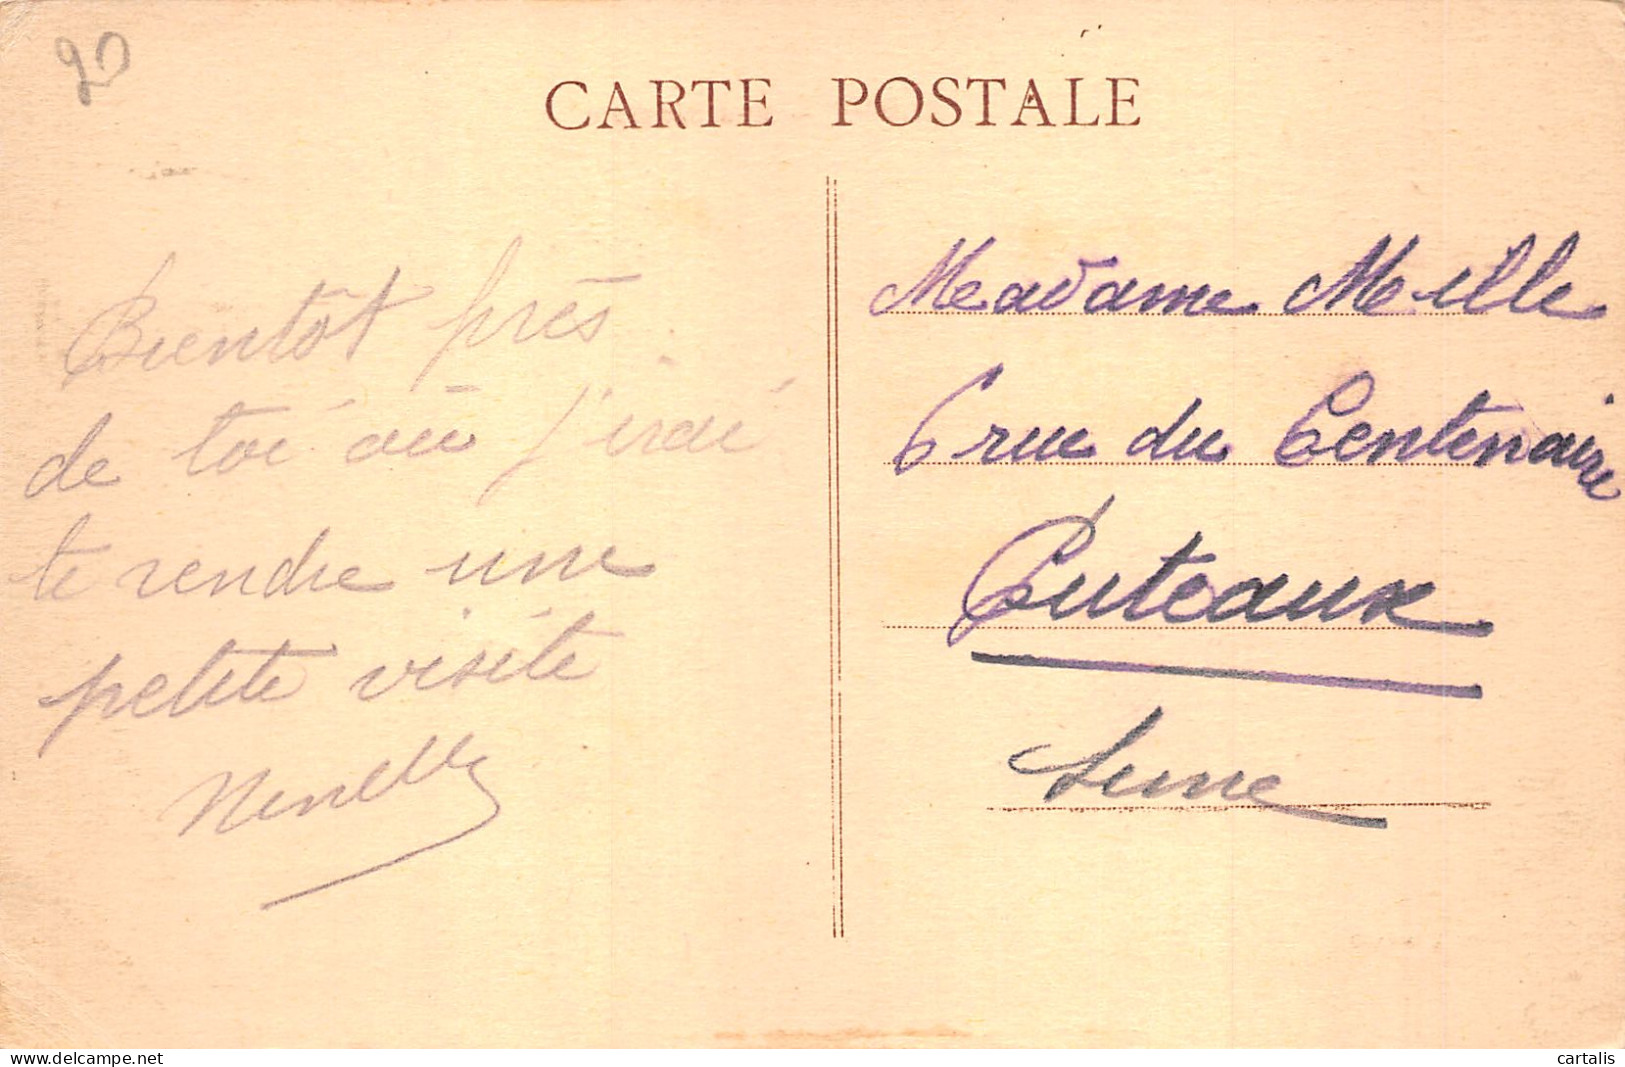 20
CARTE POSTALE
Bientôt près
de toi où j'irai
te rendre une
petite visite
Madame Mille
6 rue du Centenaire
Puteaux
Seine
cartalis